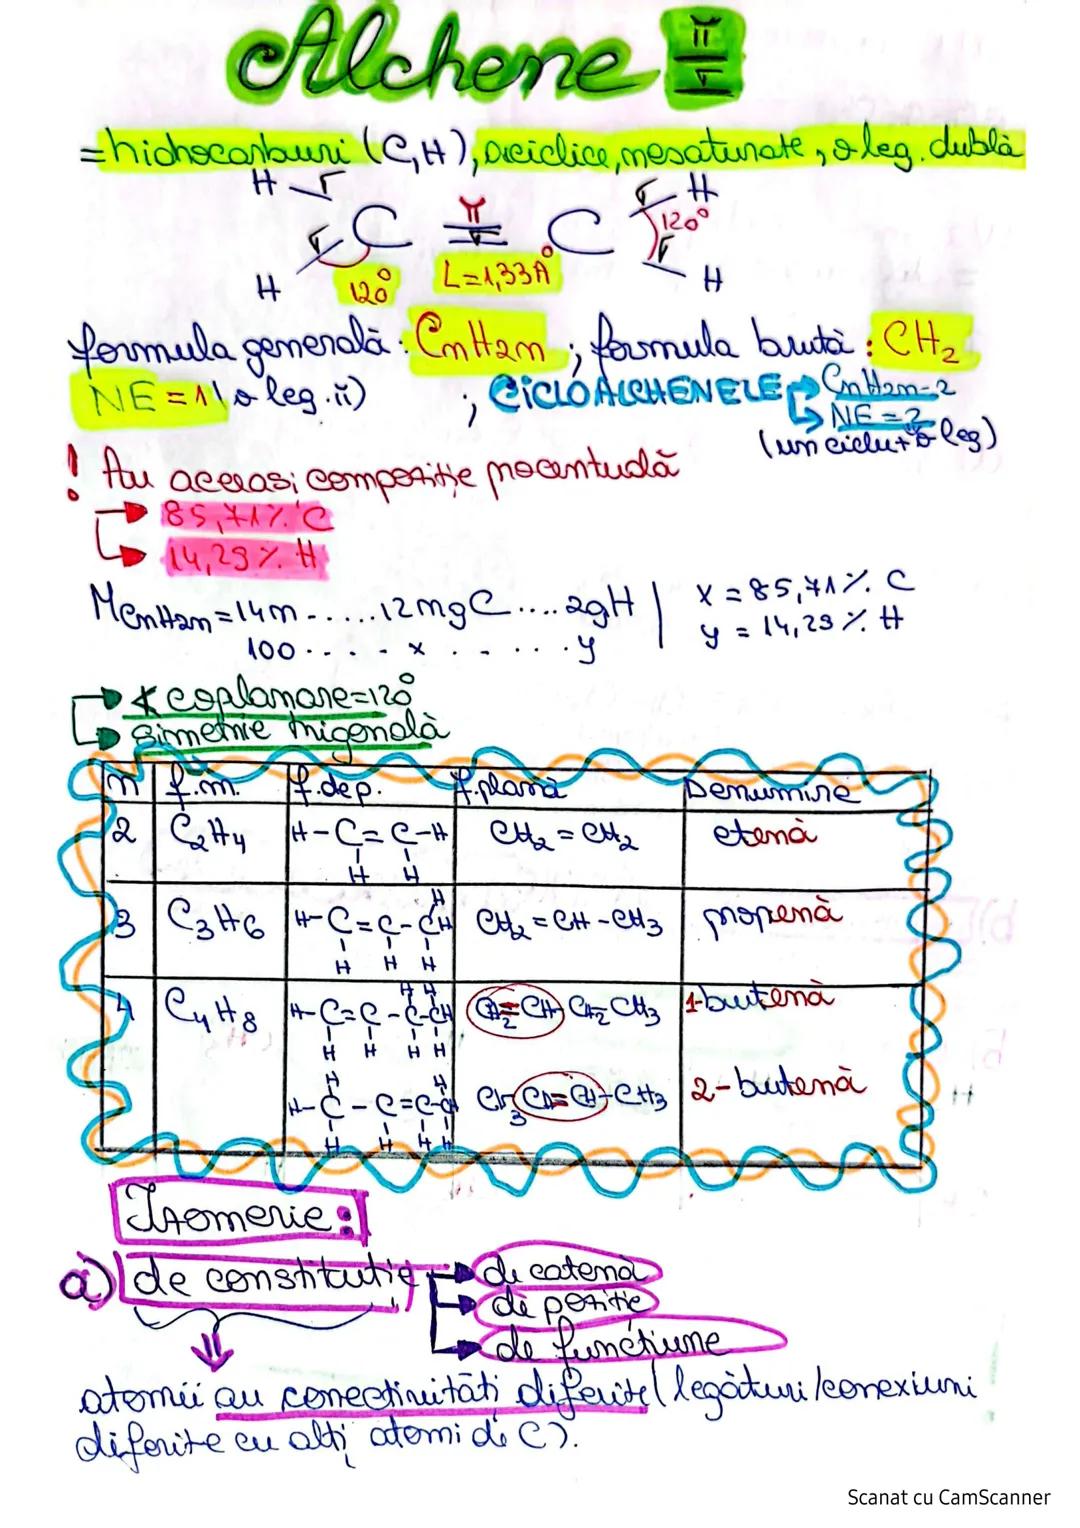 Alchene π σ
= hidrocarburi (C,H), aciclice, nesaturate, o leg. dublă
H σ σ H
C π σ C 120°
σ σ
H 120° L=1,33Å H
formula generală: CnH2n ; formula brută: CH2
NE = 1 (o leg. π) ; CICLOALCHENELE CnH2n-2
NE = 2
(un ciclu + o leg)
! Au aceeași compoziție procentuală
85,71% C
14,29% H
MCnH2n = 14n ..... 12ngC .... 2gH | x = 85,71% C
100 .... x ...... y | y = 14,29% H
∢ coplanare = 120°
simetrie trigonală
n f.m. f.dep. f.plană Denumire
2 C2H4 H-C=C-H CH2=CH2 etenă
H H
H
3 C3H6 H-C=C-CH CH2=CH-CH3 propenă
H H H
H H
4 C4H8 H-C=C-C-CH CH2=CH-CH2-CH3 1-butenă
H H H H
H H
H-C-C=C-CH CH3-CH=CH-CH3 2-butenă
H H H H
Izomerie:
a) de constituție de catenă
de poziție
de funcțiune
atomii au conectivități diferite (legături/conexiuni
diferite cu alți atomi de C).
Scanat cu CamScanner